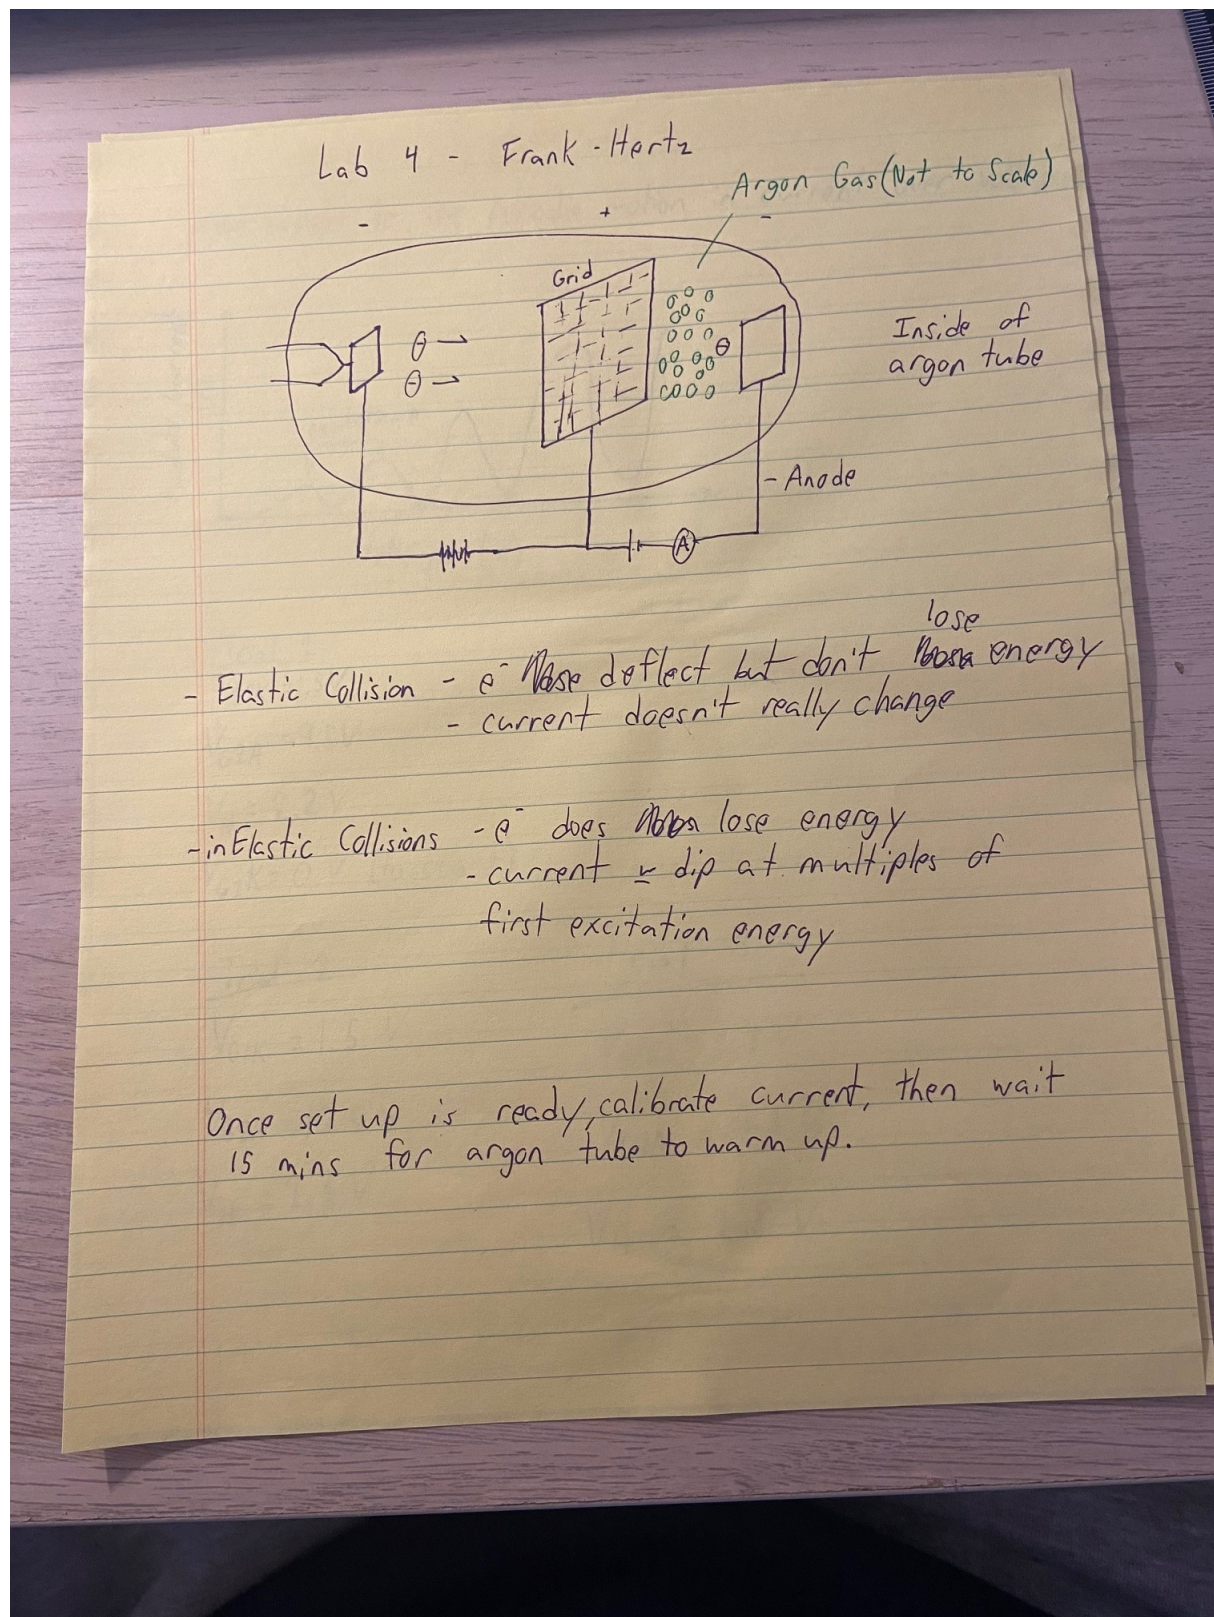 Lab 4 - Frank-Hertz
Argon Gas (Not to Scale)
- + -
Grid
Inside of
argon tube
- Anode
A
lose
- Elastic Collision - e⁻ deflect but don't energy
- current doesn't really change
- inElastic Collisions - e⁻ does lose energy
- current dip at multiples of
first excitation energy
Once set up is ready, calibrate current, then wait
15 mins for argon tube to warm up.